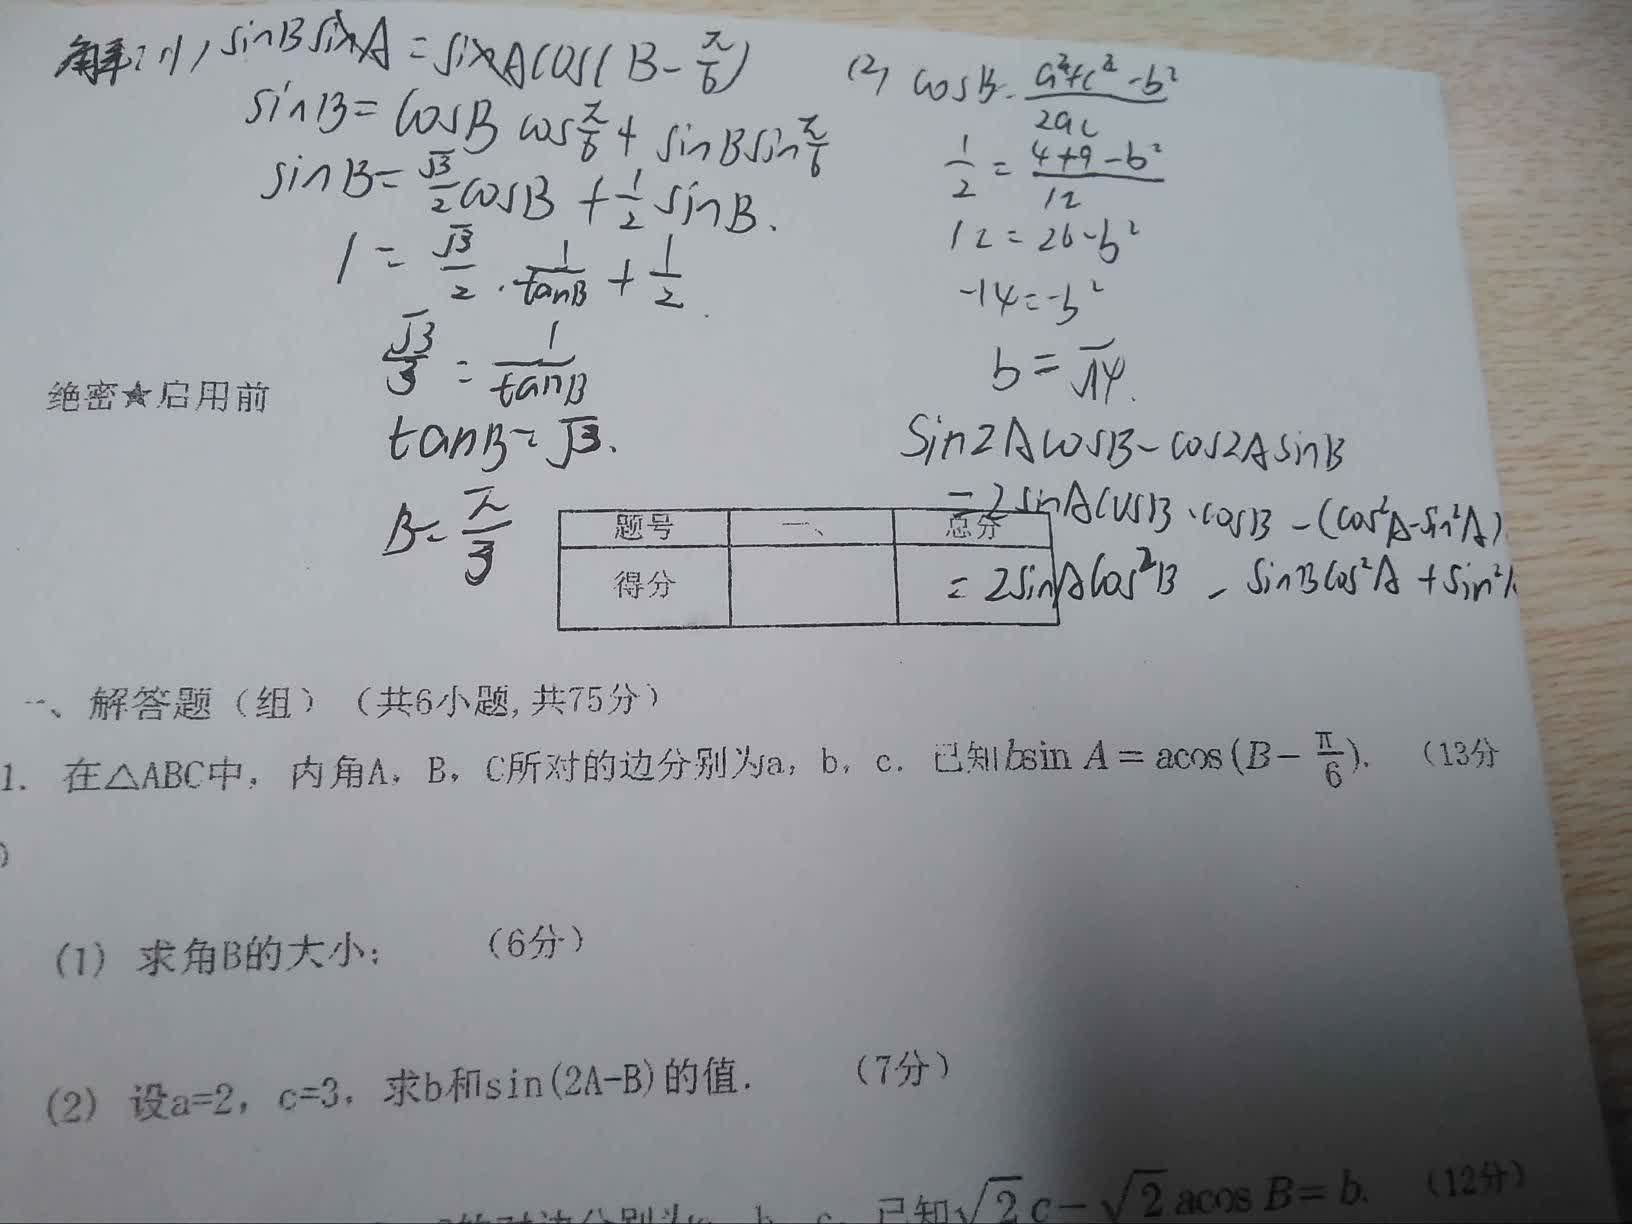 解:(1) sinBsinA=sinAcos(B-π/6)
sinB=cosBcosπ/6+sinBsinπ/6
sinB=√3/2cosB+1/2sinB.
1=√3/2·1/tanB+1/2
√3/3=1/tanB
tanB=√3.
B=π/3
(2) cosB=(a²+c²-b²)/2ac
1/2=(4+9-b²)/12
12=26-b²
-14=-b²
b=√14.
sin2AcosB-cos2AsinB
=2sinAcosB·cosB-(cos²A-sin²A)
=2sinAcos²B-sinBcos²A+sin²A
绝密★启用前
题号 一、 总分
得分
一、解答题(组)(共6小题,共75分)
1. 在△ABC中,内角A,B,C所对的边分别为a,b,c.已知bsin A=acos(B-π/6). (13分
)
(1) 求角B的大小; (6分)
(2) 设a=2,c=3,求b和sin(2A-B)的值. (7分)
已知√2c-√2acos B=b. (12分)